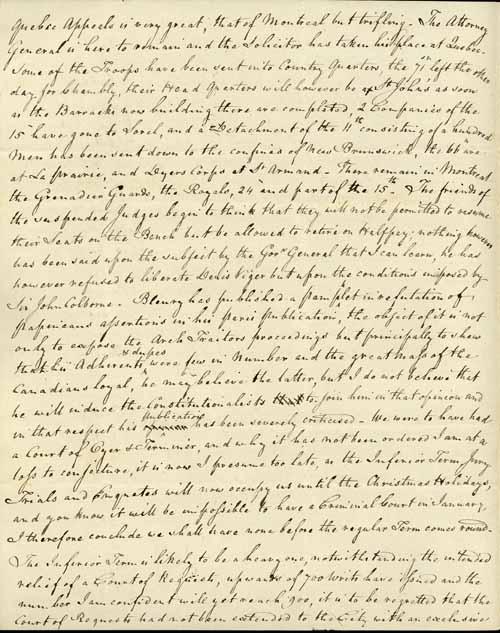 Quebec Appeals is very great, that of Montreal but trifling - The Attorney
General is here to remain and the Solicitor has taken his place at Quebec.
Some of the Troops have been sent into Country Quarters, the 7th left the other
day for Chambly, their Head Quarters will however be at St Johns as soon
as the Barracks now building there are completed, 2 Companies of the
15th have gone to Sorel, and a Detachment of the 11th consisting of a hundred
Men has been sent down to the confines of New Brunswick, the 66th are
at La prairie, and Dyers Corps at St Armand - There remain in Montreal
the Grenadier Guards, the Royals, 24 and part of the 15th. The friends of
the suspended Judges begin to think that they will not be permitted to resume
their Seats on the Bench but be allowed to retire on Half pay; nothing however
has been said upon the subject by the Govr General that I can learn, he has
however refused to liberate Denis Viger but upon the conditions imposed by
Sir John Colborne - Bleury has published a pamphlet in refutation of
Papineaus assertions in his paris publication, the object of it is not
only to expose the Arch Traitors proceedings but principally to shew
that his Adherents & dupes were few in Number and the great Mass of the
Canadians loyal, he may believe the latter, but I do not believe that
he will induce the Constitutionalists to join him in that opinion and
in that respect his Publication has been severely criticised - We were to have had
a Court of Oyer & Terminer, and why it has not been ordered I am at a
loss to conjecture, it is now I presume too late, as the Inferior Term Jury
Trials and Enquetes will now occupy us until the Christmas Holidays,
and you know it will be impossible to have a Criminal Court in January,
I therefore conclude we shall have none before the regular Term comes round -
The Inferior Term is likely to be a heavy one, notwithstanding the intended
relief of a Court of Request, upwards of 700 Writs have issued and the
number I am confident will yet reach 900, it is to be regretted that the
Court of Requests had not been extended to the City with an exclusive